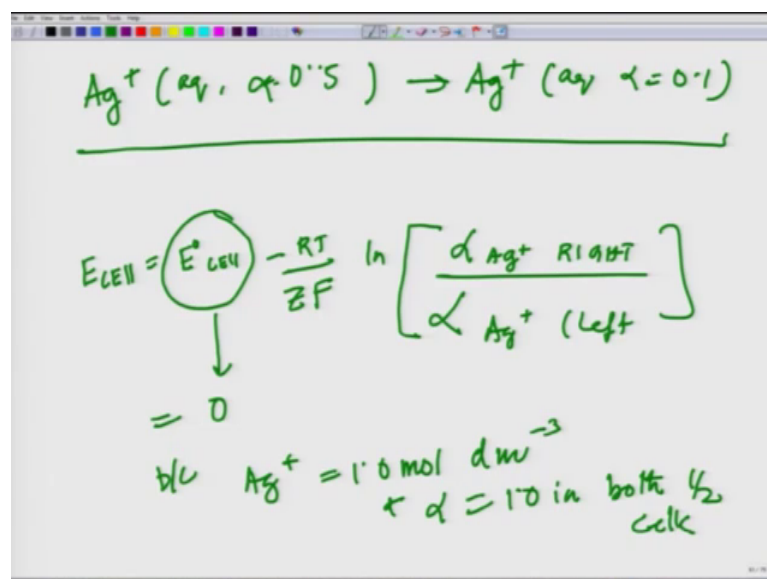 Ag+ (aq, α=0.5) → Ag+ (aq α=0.1)
E CEll = E° CEll - RT/ZF ln [ α Ag+ RIGHT / α Ag+ (Left ]
= 0
b/c Ag+ = 1.0 mol dm-3
+ α = 1.0 in both 1/2
cells